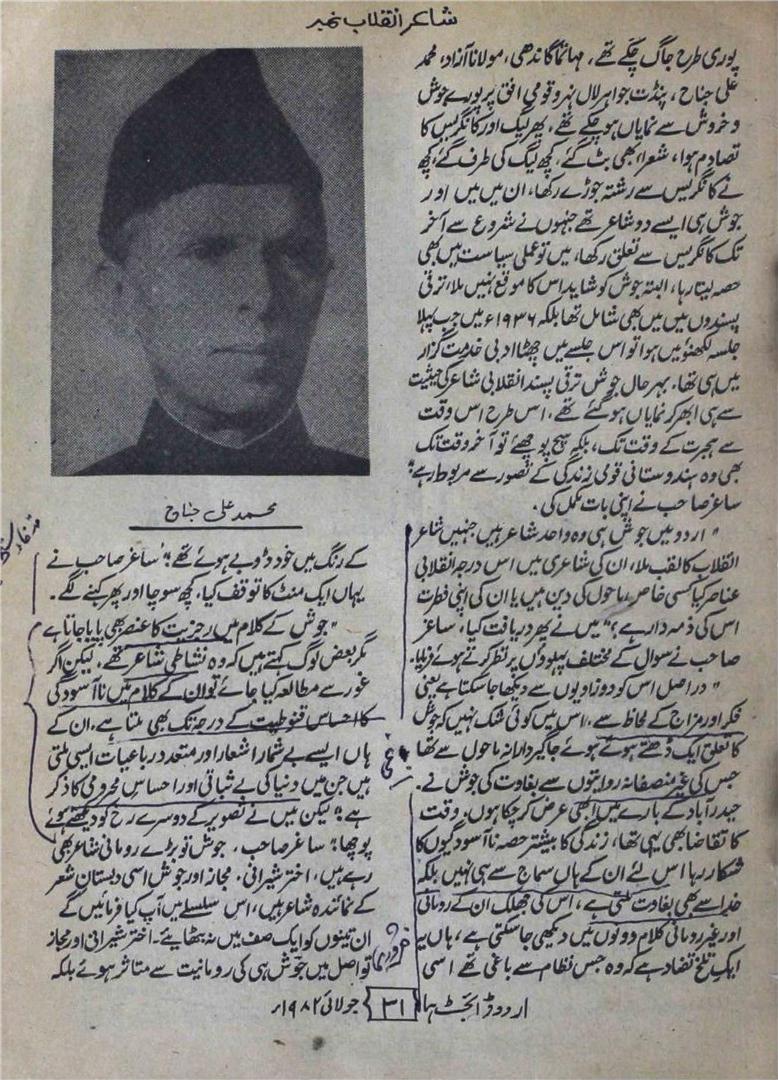 شاعر انقلاب نمبر
پوری طرح جاگ چکے تھے، مہاتما گاندھی، مولانا آزاد، محمد
علی جناح، پنڈت جواہر لال نہرو قومی افق پر پورے جوش
و خروش سے نمایاں ہو چکے تھے، پھر لیگ اور کانگریس کا
تصادم ہوا، شعراء بھی بٹ گئے، کچھ لیگ کی طرف گئے، کچھ
نے کانگریس سے رشتہ جوڑے رکھا، ان میں میں اور
جوش ہی ایسے دو شاعر تھے جنہوں نے شروع سے آخر
تک کانگریس سے تعلق رکھا، میں تو عملی سیاست میں بھی
حصہ لیتا رہا، البتہ جوش کو شاید اس کا موقع نہیں ملا، ترقی
پسندوں میں میں بھی شامل تھا بلکہ ۱۹۳۶ء میں جب پہلا
جلسہ لکھنؤ میں ہوا تو اس جلسے میں چھٹا ادبی خدمت گزار
میں ہی تھا، بہر حال جوش ترقی پسند انقلابی شاعر کی حیثیت
سے ہی ابھر کر نمایاں ہو گئے تھے، اس طرح اس وقت
سے ہجرت کے وقت تک، بلکہ سچ پوچھئے تو آخر وقت تک
بھی وہ ہندوستانی قومی زندگی کے تصور سے مربوط رہے"
ساغر صاحب نے اپنی بات مکمل کی.
" اردو میں جوش ہی وہ واحد شاعر ہیں جنہیں شاعر
انقلاب کا لقب ملا، ان کی شاعری میں اس درجہ انقلابی
عناصر کیا کسی خاص ماحول کی دین ہیں یا ان کی اپنی فطرت
اس کی ذمہ دار ہے؟" میں نے پھر دریافت کیا، ساغر
صاحب نے سوال کے مختلف پہلوؤں پر نظر کرتے ہوئے فرمایا.
" دراصل اس کو دو زاویوں سے دیکھا جا سکتا ہے یعنی
فکر اور مزاج کے لحاظ سے، اس میں کوئی شک نہیں کہ جوش
کا تعلق ایک ڈھتے ہوئے ہوئے جاگیردارانہ ماحول سے تھا
جس کی غیر منصفانہ روایتوں سے بغاوت کی جوش نے.
حیدرآباد کے بارے میں ابھی عرض کر چکا ہوں. وقت
کا تقاضا بھی یہی تھا، زندگی کا بیشتر حصہ ناآسودگیوں کا
شکار رہا اس لئے ان کے ہاں سماج سے ہی نہیں بلکہ
خدا سے بھی بغاوت ملتی ہے، اس کی جھلک ان کے رومانی
اور غیر رومانی کلام دونوں میں دیکھی جا سکتی ہے، ہاں یہ
ایک تلخ تضاد ہے کہ وہ جس نظام سے باغی تھے اسی
باغی
محمد علی جناح
کے رنگ میں خود ڈوبے ہوئے تھے" ساغر صاحب نے
یہاں ایک منٹ کا توقف کیا، کچھ سوچا اور پھر کہنے لگے.
" جوش کے کلام میں رجزیت کا عنصر بھی پایا جاتا ہے
مگر بعض لوگ کہتے ہیں کہ وہ نشاطی شاعر تھے، لیکن اگر
غور سے مطالعہ کیا جائے تو ان کے کلام میں ناآسودگی
کا احساس قنوطیت کے درجہ تک بھی ملتا ہے. ان کے
ہاں ایسے بے شمار اشعار اور متعدد رباعیات ایسی ملتی
ہیں جن میں دنیا کی بے ثباتی اور احساس محرومی کا ذکر
ہے" لیکن میں نے تصویر کے دوسرے رخ کو دیکھتے ہوئے
پوچھا" ساغر صاحب، جوش تو بڑے رومانی شاعر بھی
رہے ہیں، اختر شیرانی، مجاز اور جوش اسی دبستان شعر
کے نمائندہ شاعر ہیں، اس سلسلے میں آپ کیا فرمائیں گے
ان تینوں کو ایک صف میں نہ بٹھایئے، اختر شیرانی اور مجاز
تو اصل میں جوش ہی کی رومانیت سے متاثر ہوئے بلکہ
اردو ڈائجسٹ ہما ۳۱ جولائی ۱۹۸۲ء